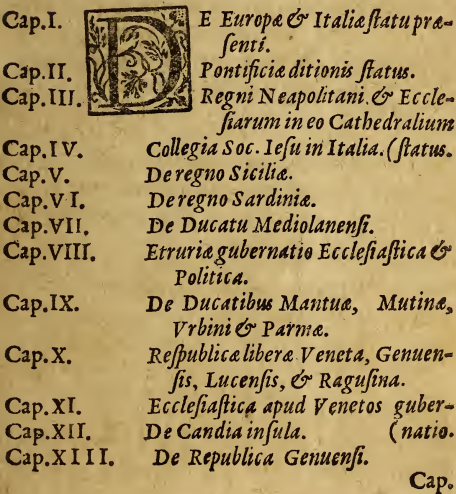 Cap.I. DE Europæ & Italiæ ſtatu præ-
ſenti.
Cap.II. Pontificiæ ditionis ſtatus.
Cap.III. Regni Neapolitani & Eccle-
ſiarum in eo Cathedralium
Cap.IV. Collegia Soc. Ieſu in Italia. (ſtatus.
Cap.V. De regno Siciliæ.
Cap.VI. De regno Sardiniæ.
Cap.VII. De Ducatu Mediolanenſi.
Cap.VIII. Etruriæ gubernatio Eccleſiaſtica &
Politica.
Cap.IX. De Ducatibus Mantuæ, Mutinæ,
Vrbini & Parmæ.
Cap.X. Reſpublicæ liberæ Veneta, Genuen-
ſis, Lucenſis, & Raguſina.
Cap.XI. Eccleſiaſtica apud Venetos guber-
Cap.XII. De Candia inſula. (natio.
Cap.XIII. De Republica Genuenſi.
Cap.